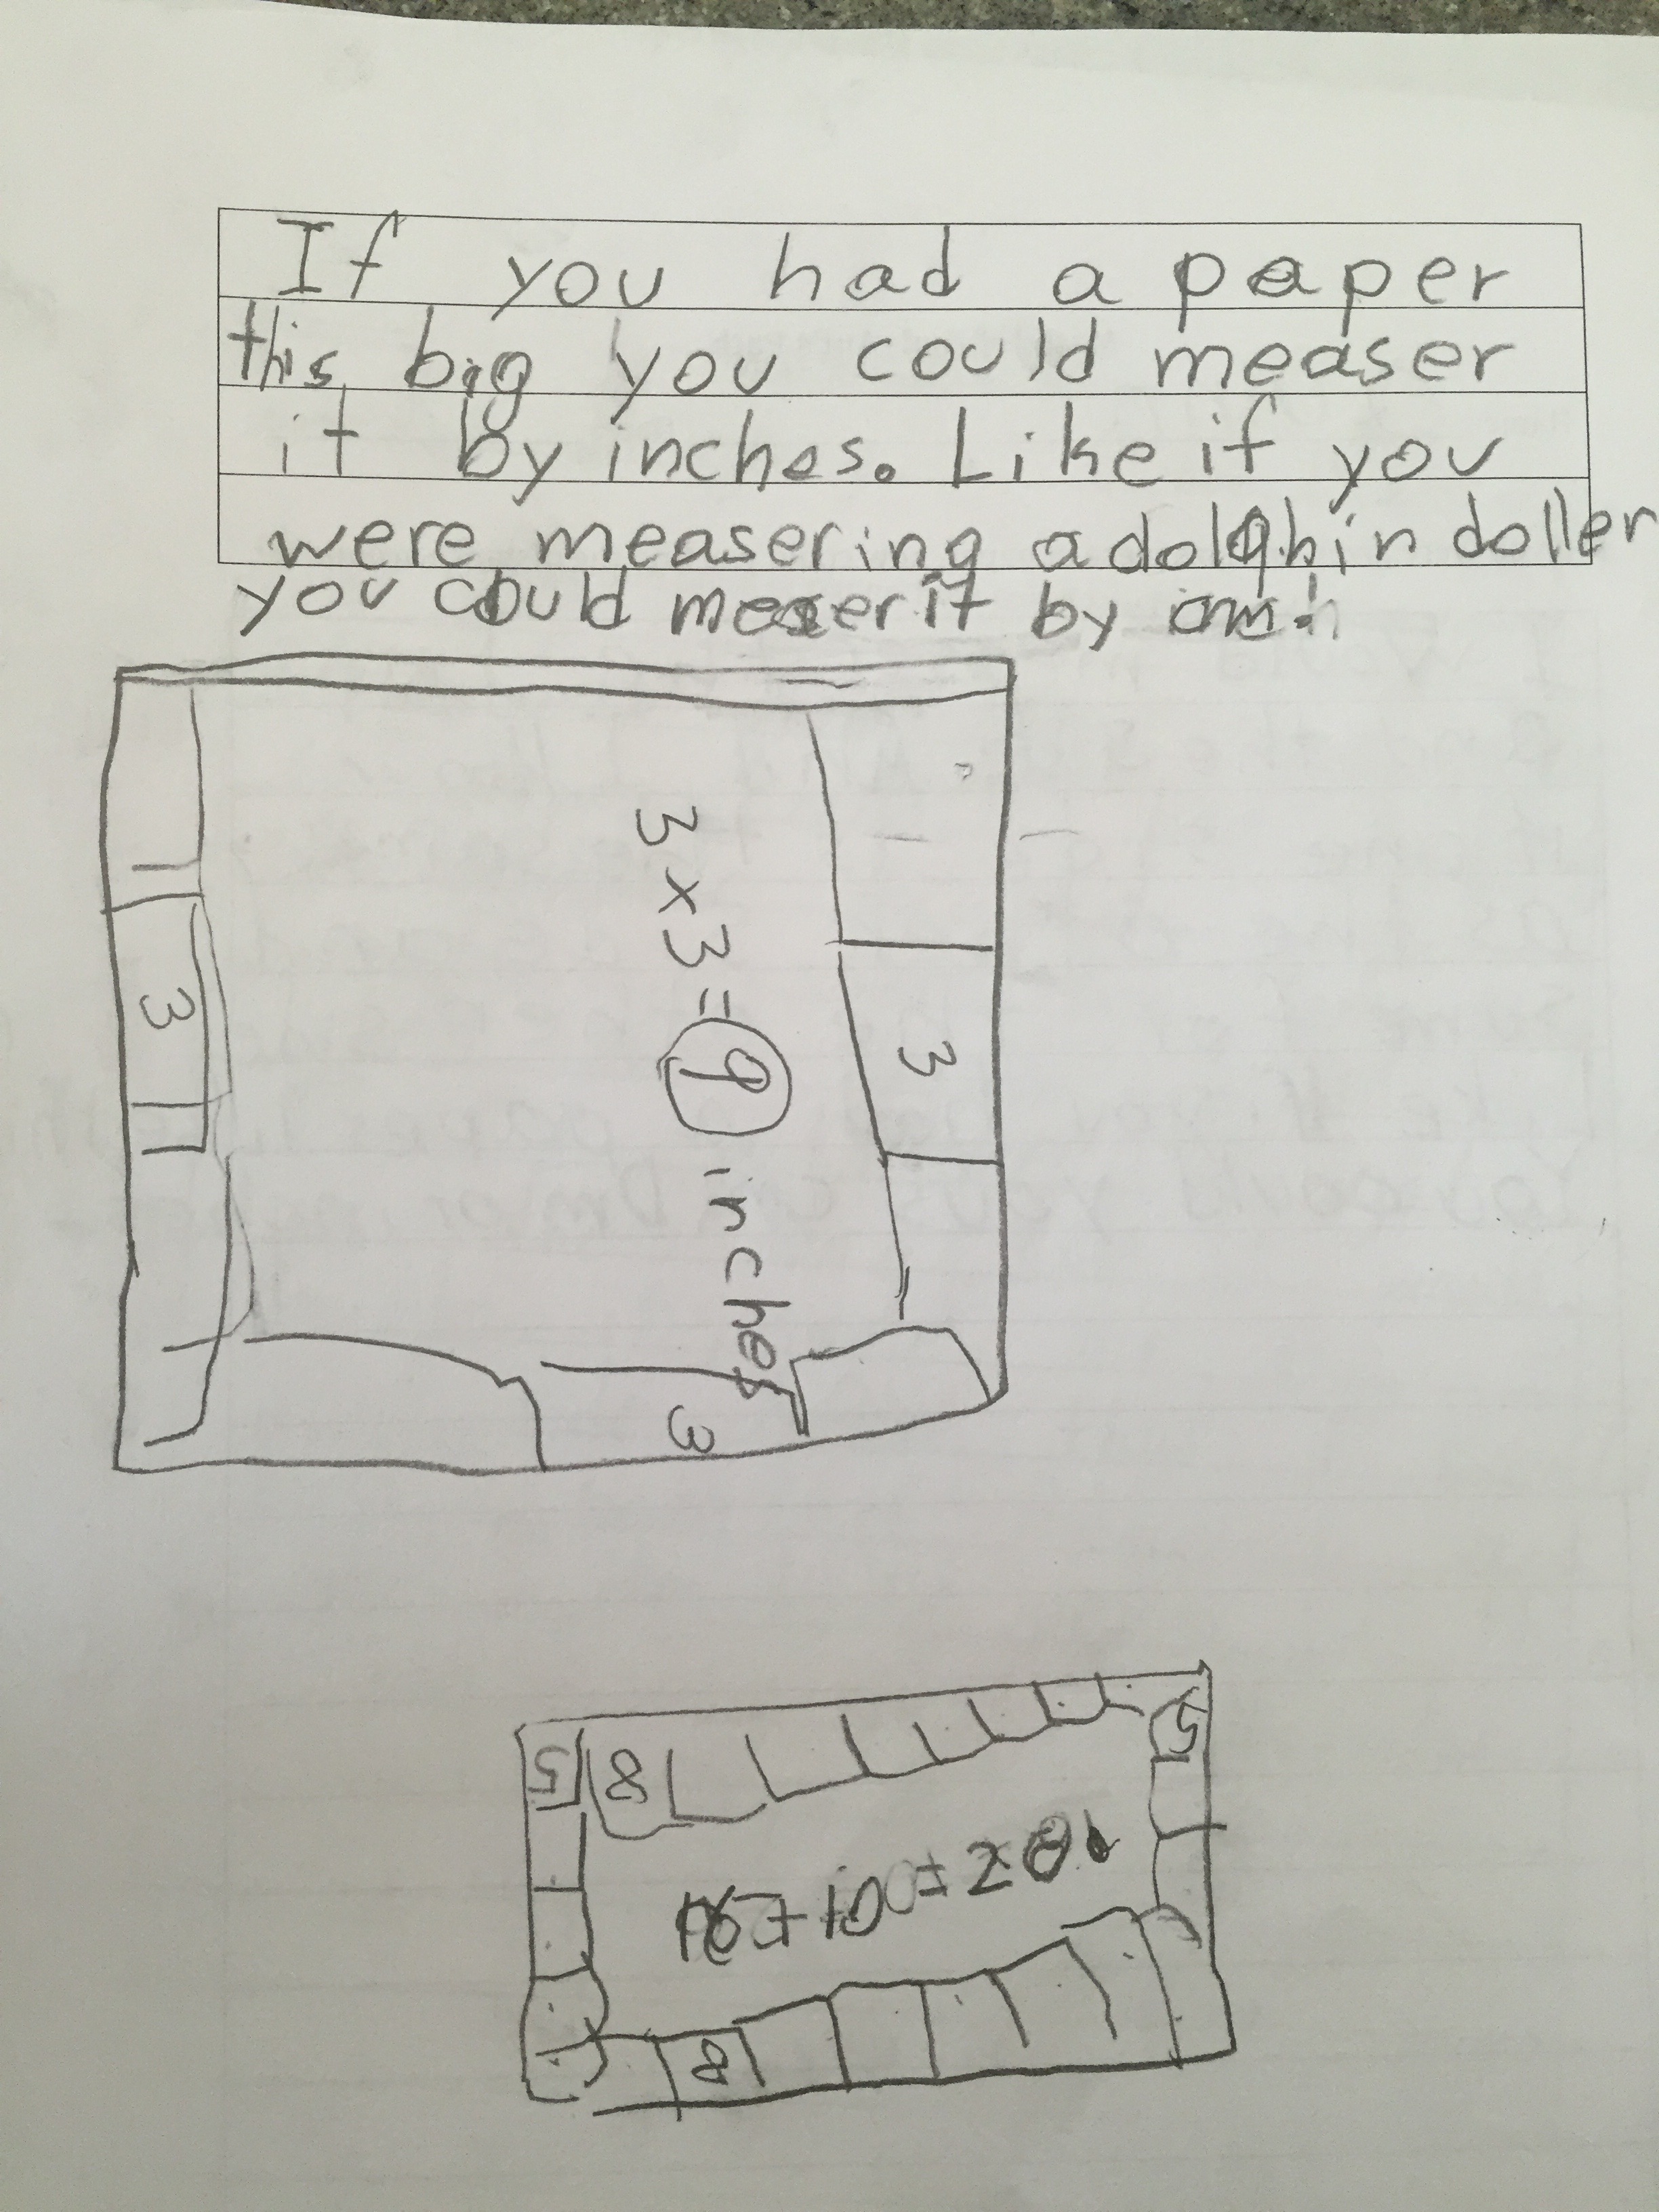 If you had a paper
this big you could measer
it by inches. Like if you
were measering a dolphin doller
you could measer it by
3
3 x 3 = 9 inches
3
3
5
8
5
8